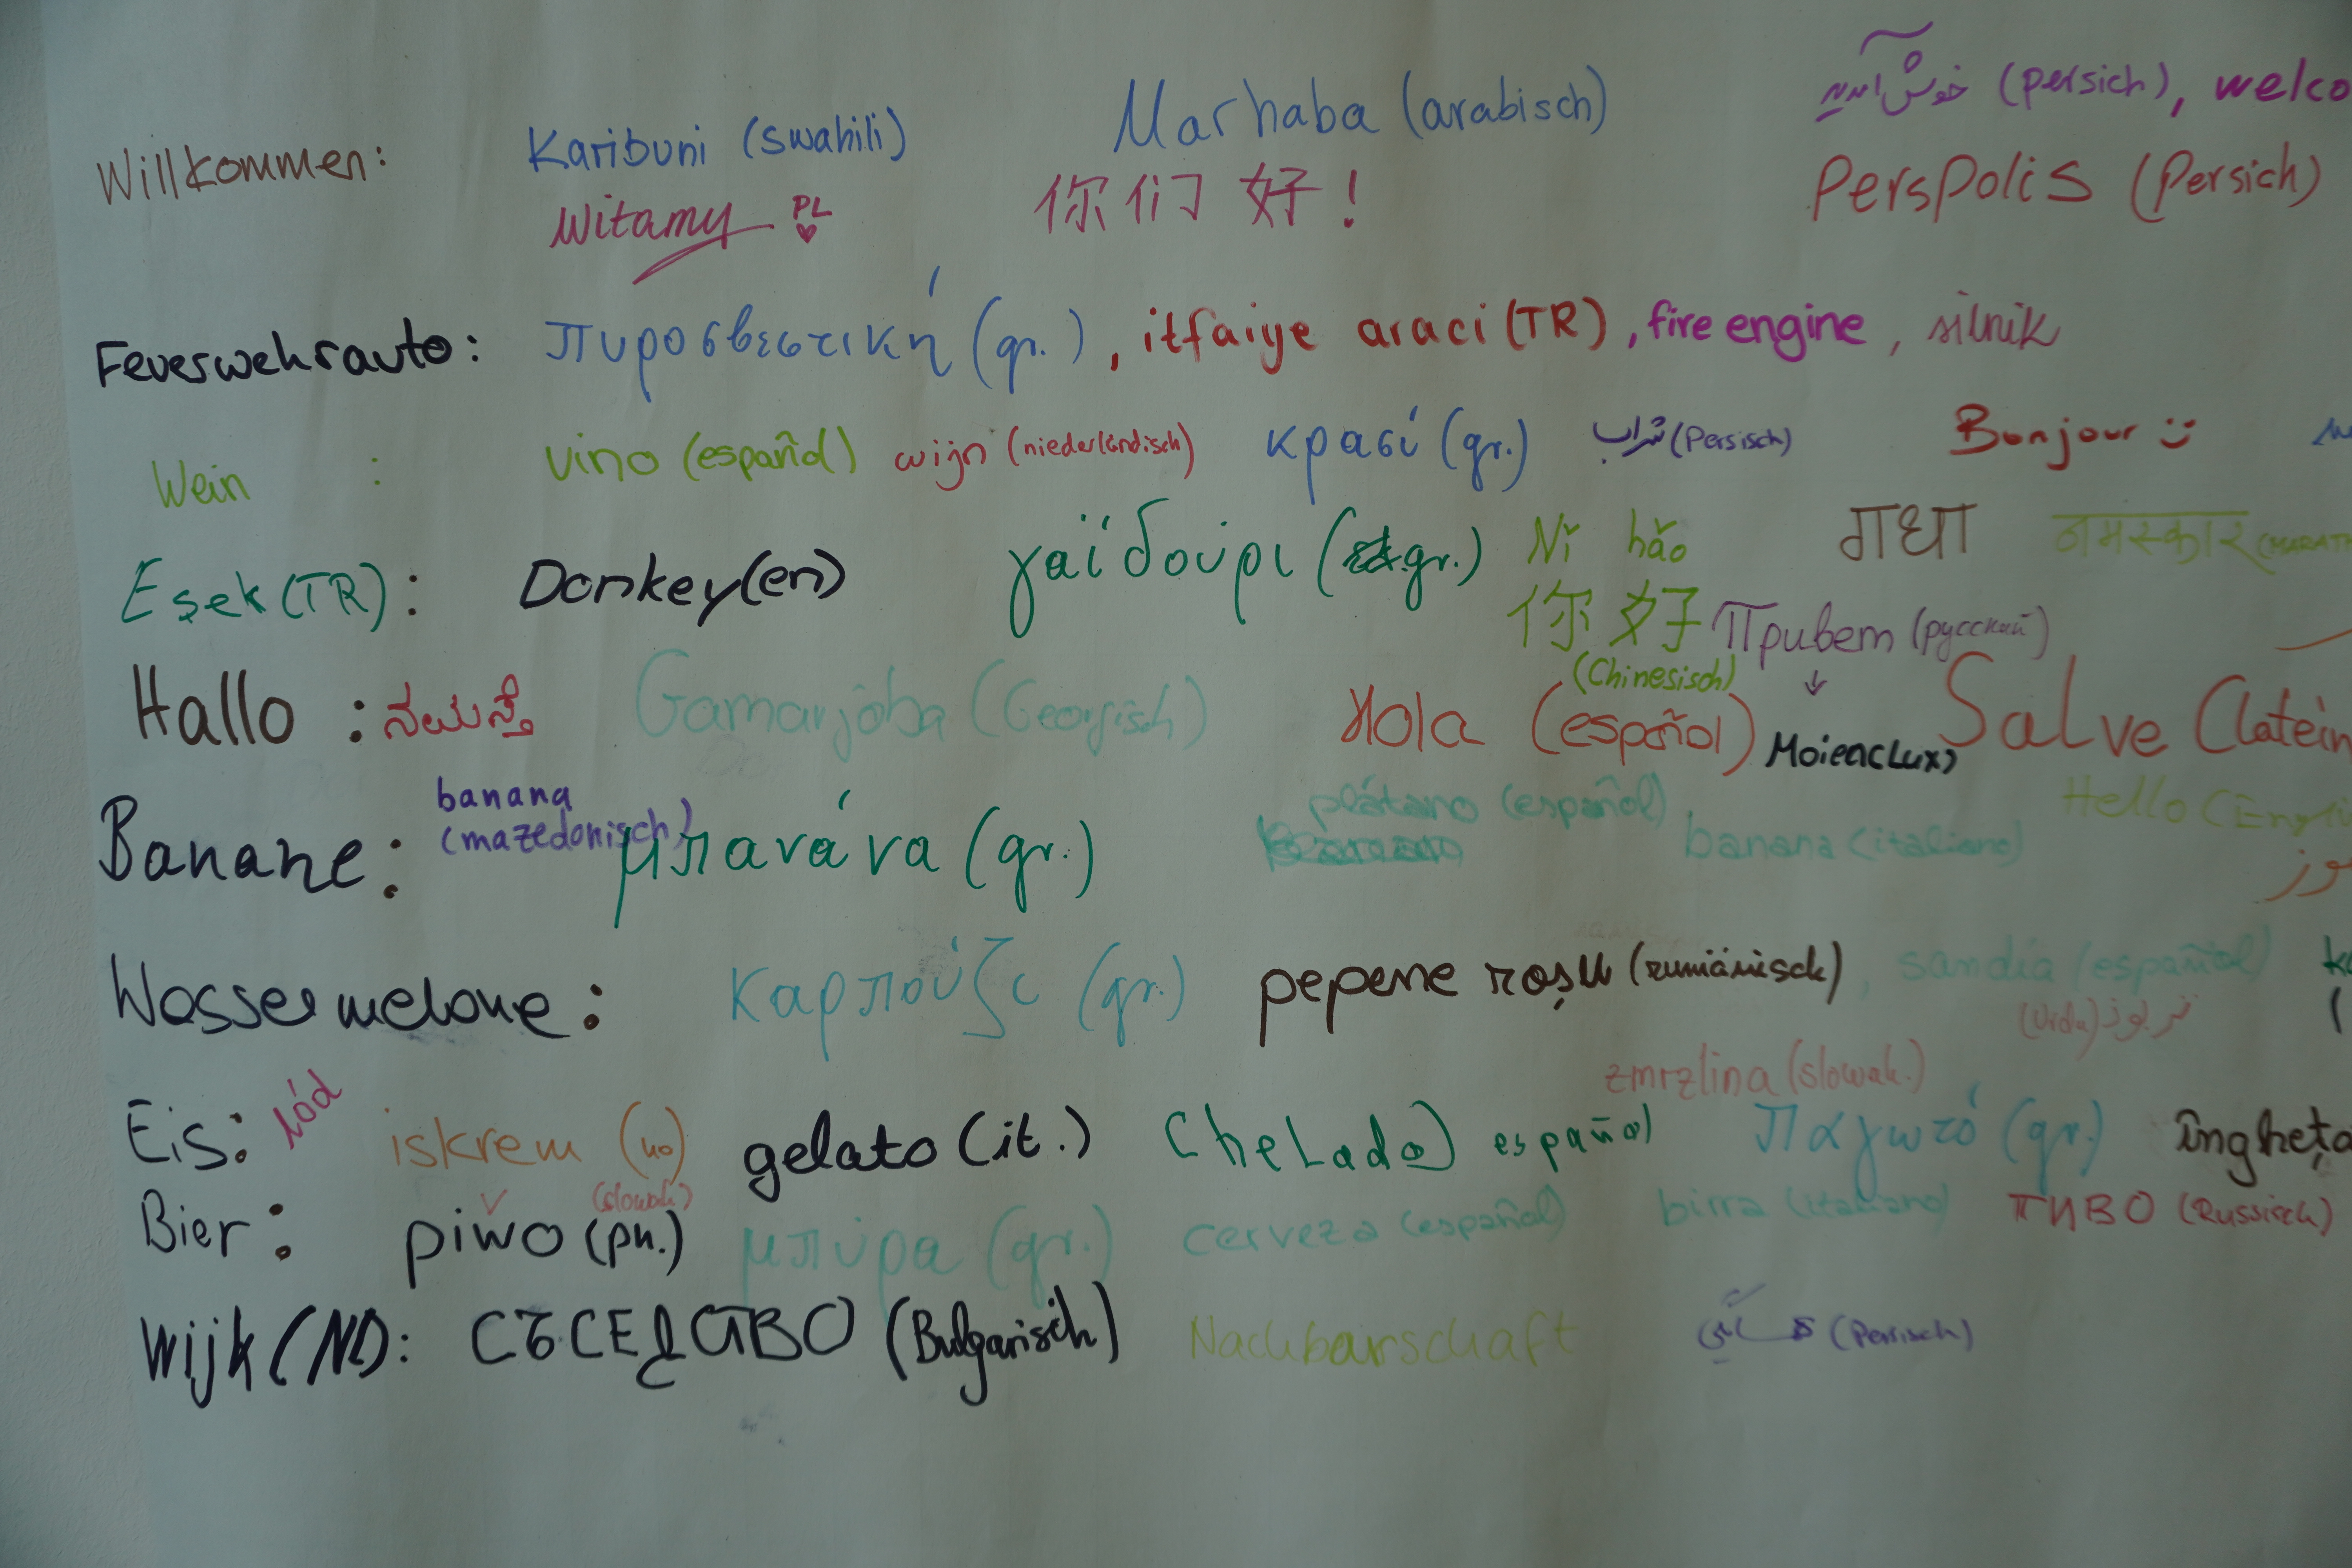 خوش آمدید (persich), welco
Willkommen: Karibuni (swahili) Marhaba (arabisch)
Witamy PL 你们好! Perspolis (Persich)
Feuerwehrauto: πυροσβεστική (gr.), itfaiye araci (TR), fire engine, silnik
Wein : vino (español) wijn (niederländisch) κρασί (gr.) شراب (Persisch) Bonjour
Eşek (TR): Donkey (en) γαϊδούρι (gr.) Nǐ hǎo गधा नमस्कार (MARATH
你好 Привет (русский)
(Chinesisch)
Hallo : ನಮಸ್ತೆ Gamarjoba (Georgisch) Hola (español) Moien (Lux) Salve (latein
banana plátano (español) Hello (Engli
(mazedonisch)
Banane: μπανάνα (gr.) banana (italiano)
Wassermelone: Καρπούζι (gr.) pepene roşu (rumänisch), sandía (español)
(Urdu) تربوز
zmrzlina (slowak.)
Eis: lód iskrem (no) gelato (it.) Chelado) español παγωτό (gr.) îngheţa
(slowak)
Bier: piwo (pn.) μπύρα (gr.) cerveza (español) birra (italiano) пиво (Russisch)
Wijk (Nl): СЪСЕДСТВО (Bulgarisch) Nachbarschaft (Persisch)